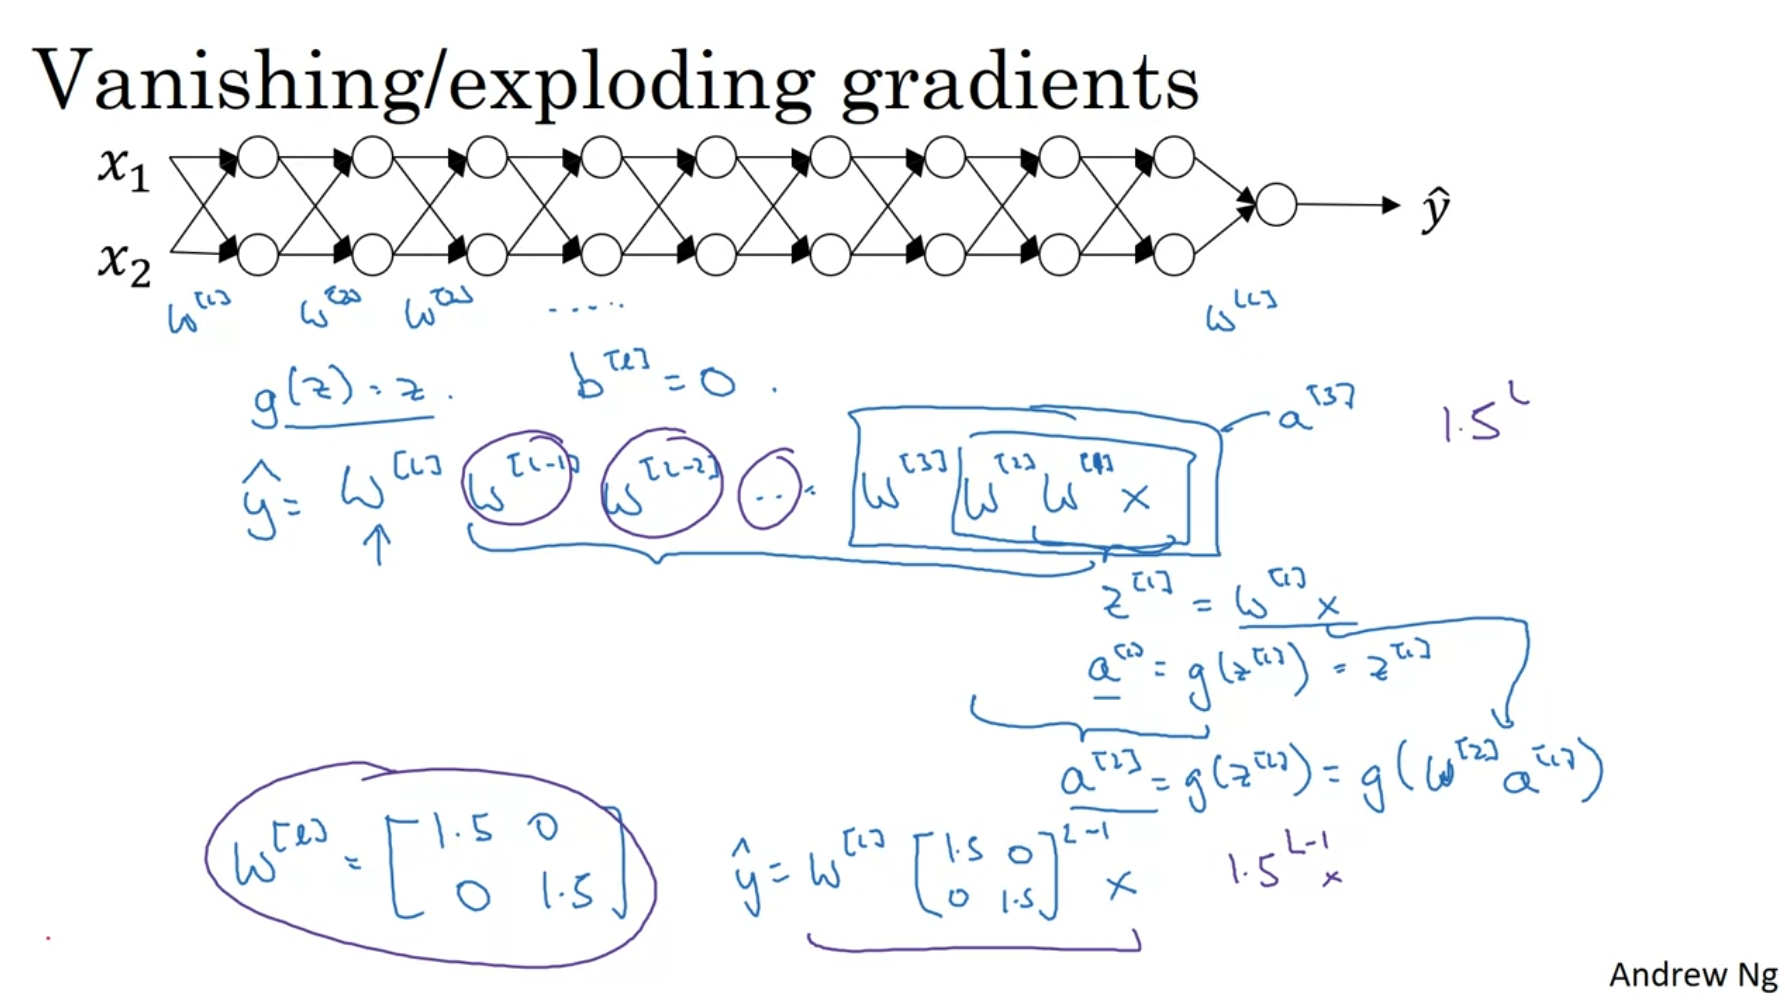 Vanishing/exploding gradients
x₁
x₂
ŷ
w^[1] w^[2] w^[3] ..... w^[L]
g(z) = z. b^[l] = 0.
a^[3] 1.5^L
ŷ = w^[L] w^[L-1] w^[L-2] ... w^[3] w^[2] w^[1] x
z^[1] = w^[1] x
a^[1] = g(z^[1]) = z^[1]
a^[2] = g(z^[2]) = g(w^[2] a^[1])
w^[l] = [1.5 0
0 1.5]
ŷ = w^[L] [1.5 0
0 1.5]^L-1 x
1.5^L-1 x
Andrew Ng